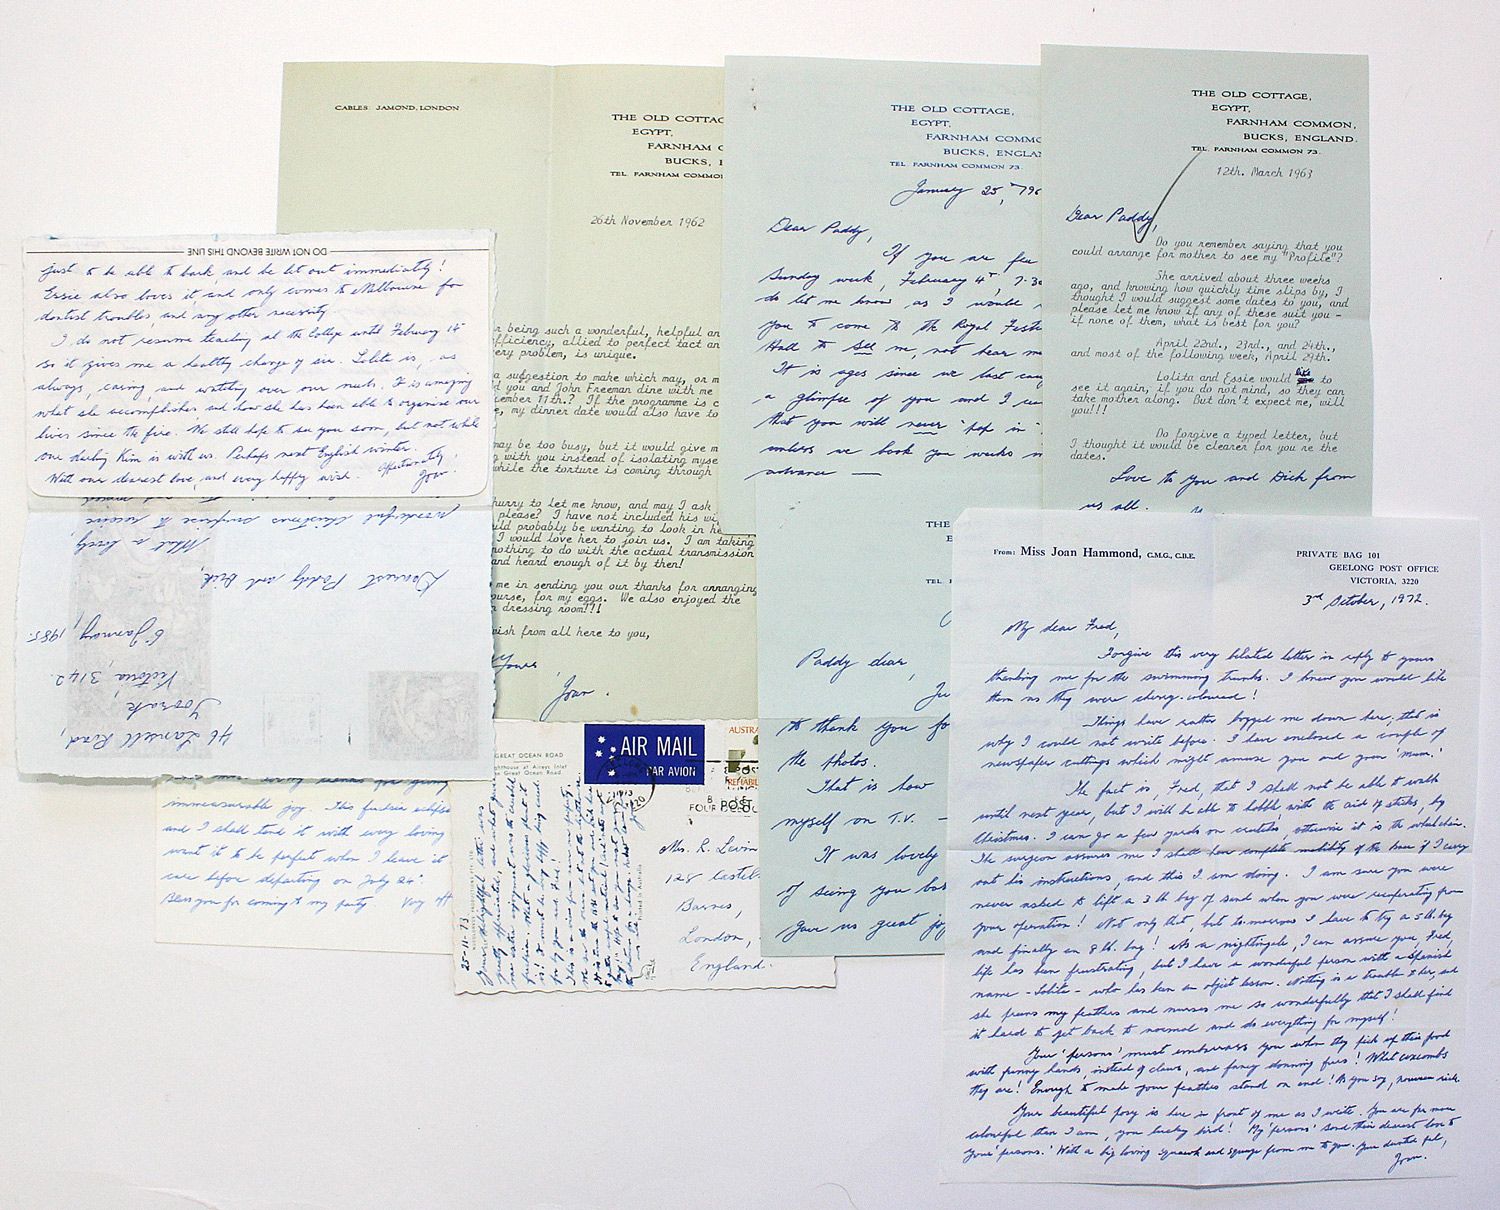 CABLES: JAMOND, LONDON
THE OLD COTTAG
EGYPT,
FARNHAM C
BUCKS, E
TEL. FARNHAM COMMO
26th November 1962
r being such a wonderful, helpful an
fficiency, allied to perfect tact an
ery problem, is unique.
a suggestion to make which may, or m
d you and John Freeman dine with me
cember 11th.? If the programme is c
e, my dinner date would also have to
may be too busy, but it would give m
g with you instead of isolating myse
while the torture is coming through
hurry to let me know, and may I ask
please? I have not included his wi
ld probably be wanting to look in he
I would love her to join us. I am taking
nothing to do with the actual transmission
and heard enough of it by then!
me in sending you our thanks for arranging
ourse, for my eggs. We also enjoyed the
n dressing room!!!
wish from all here to you,
Yours
Joan.
THE OLD COTTAG
EGYPT,
FARNHAM COMMO
BUCKS, ENGLAN
TEL. FARNHAM COMMON 73.
January 25, 196
Dear Paddy,
If you are free
Sunday week, February 4th, 7.30
do let me know as I would
you to come to the Royal Festi
Hall to see me, not hear me
It is ages since we last caug
a glimpse of you and I
that you will never 'pop in'
unless we book you weeks in
advance —
THE OLD COTTAGE,
EGYPT,
FARNHAM COMMON,
BUCKS, ENGLAND.
TEL. FARNHAM COMMON 73.
12th. March 1963
Dear Paddy,
Do you remember saying that you
could arrange for mother to see my "Profile"?
She arrived about three weeks
ago, and knowing how quickly time slips by, I
thought I would suggest some dates to you, and
please let me know if any of these suit you -
if none of them, what is best for you?
April 22nd., 23rd., and 24th.,
and most of the following week, April 29th.
Lolita and Essie would like to
see it again, if you do not mind, so they can
take mother along. But don't expect me, will
you!!!
Do forgive a typed letter, but
I thought it would be clearer for you re the
dates.
Love to you and Dick from
us all.
DO NOT WRITE BEYOND THIS LINE
just to be able to bark, and be let out immediately!
Essie also loves it, and only comes to Melbourne for
dentist troubles, and any other necessity.
I do not resume teaching at the College until February 14th
so it gives me a healthy change of air. Lolita is, as
always, caring, and watching over our needs. It is amazing
what she accomplishes and how she has been able to organise our
lives since the fire. We still hope to see you soon, but not while
our darling Kim is with us. Perhaps next English winter.
With our dearest love, and every happy wish. Affectionately,
Joan.
46 Lansell Road,
Toorak
Victoria, 3142.
6 January, 1985.
Dearest Paddy and Dick,
What a lovely,
wonderful Christmas surprise to receive
immeasurable joy. This fuchsia eclipse
and I shall tend it with every loving
want it to be perfect when I leave it
care before departing on July 24th.
Bless you for coming to my party
THE
E
TEL. F
Paddy dear
to thank you fo
the photos.
That is how
myself on T.V. —
It was lovely
of seeing you bo
gave us great joy
GREAT OCEAN ROAD
ghthouse at Aireys Inlet
e Great Ocean Road
AIR MAIL
PAR AVION
AUSTRA
REHABILI
POST
25-11-73
Your delightful letter was
Mrs. R. Levin
128 Castel
Barnes,
London,
England.
From: Miss Joan Hammond, C.M.G., C.B.E.
PRIVATE BAG 101
GEELONG POST OFFICE
VICTORIA, 3220
3rd October, 1972.
My dear Fred,
Forgive this very belated letter in reply to yours
thanking me for the swimming trunks. I knew you would like
them as they were cherry-coloured!
Things have rather bogged me down here; that is
why I could not write before. I have enclosed a couple of
newspaper cuttings which might amuse you and your 'mum'.
The fact is, Fred, that I shall not be able to walk
until next year, but I will be able to hobble, with the aid of sticks, by
Christmas. I can go a few yards on crutches, otherwise it is the wheelchair.
The surgeon assures me I shall have complete mobility of the knee if I carry
out his instructions, and this I am doing. I am sure you were
never asked to lift a 3 lb bag of sand when you were recuperating from
your operation! Not only that, but tomorrow I have to try a 5 lb. bag
and finally an 8 lb. bag! As a nightingale, I can assure you, Fred,
life has been frustrating, but I have a wonderful person with a Spanish
name - Lolita - who has been an object lesson. Nothing is a trouble to her, and
she preens my feathers and nurses me so wonderfully that I shall find
it hard to get back to normal and do everything for myself!
Your 'persons' must embarrass you when they pick up their food
with funny hands, instead of claws, and fancy donning furs! What coxcombs
they are! Enough to make your feathers stand on end! As you say, nouveau riche.
Your beautiful posy is here in front of me as I write. You are far more
colourful than I am, you lucky bird! My 'persons' send their dearest love to
your 'persons'. With a big loving squawk and squeeze from me to you. Your devoted pal,
Joan.